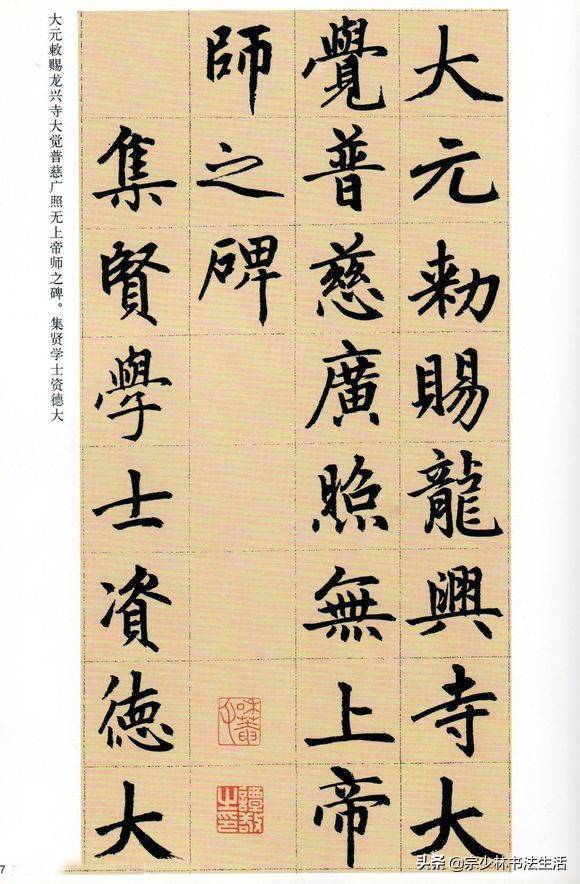 大元勅賜龍興寺大
覺普慈廣照無上帝
師之碑
集賢學士資德大
大元敕赐龙兴寺大觉普慈广照无上帝师之碑。集贤学士资德大
7
头条 @宗少林书法生活